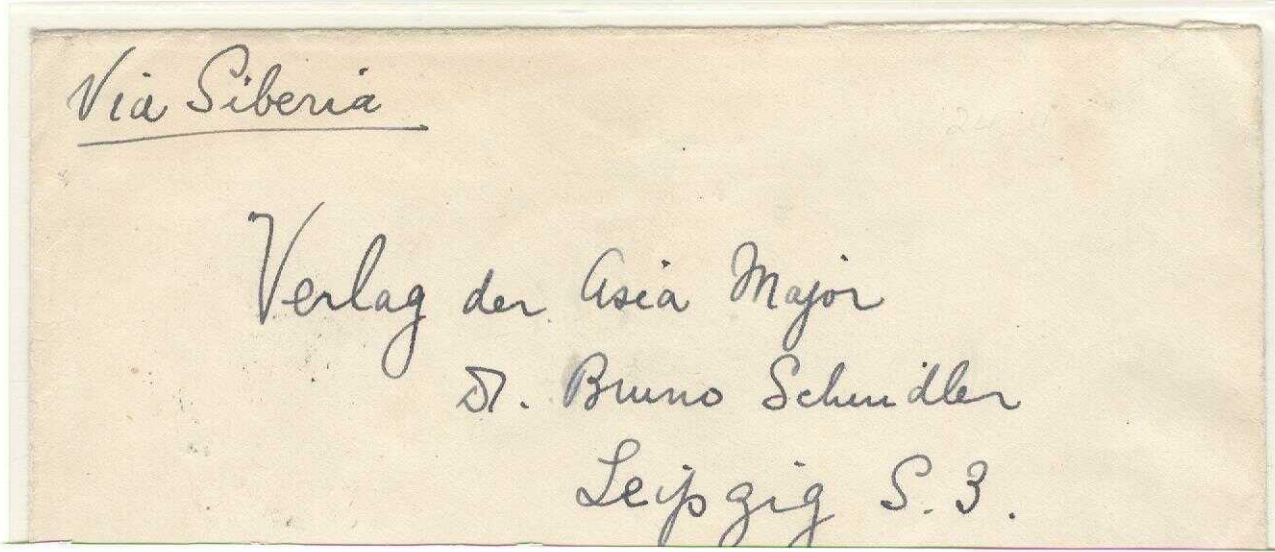 Via Siberia
Verlag der Asia Major
Dr. Bruno Schindler
Leipzig S. 3.